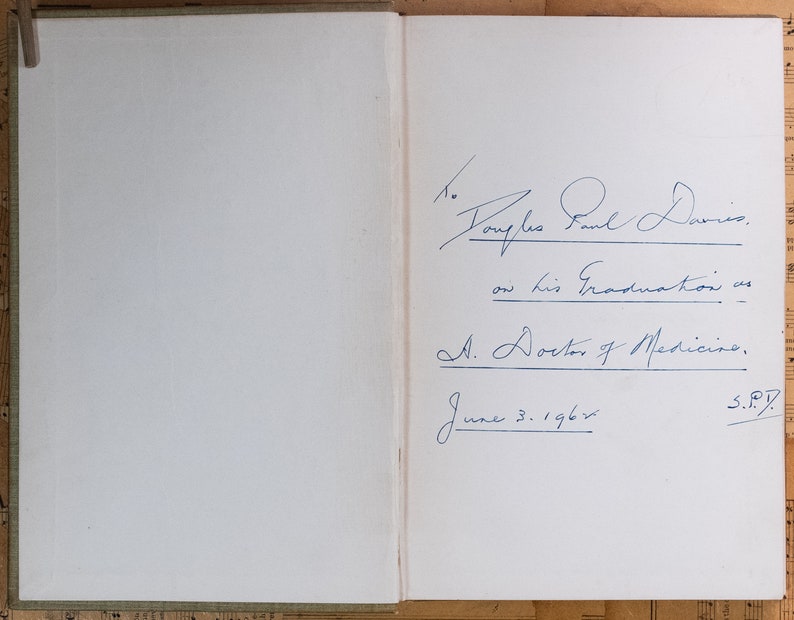 To
Douglas Paul Davies.
on his Graduation as
A. Doctor of Medicine.
June 3. 1962
S.P.D.